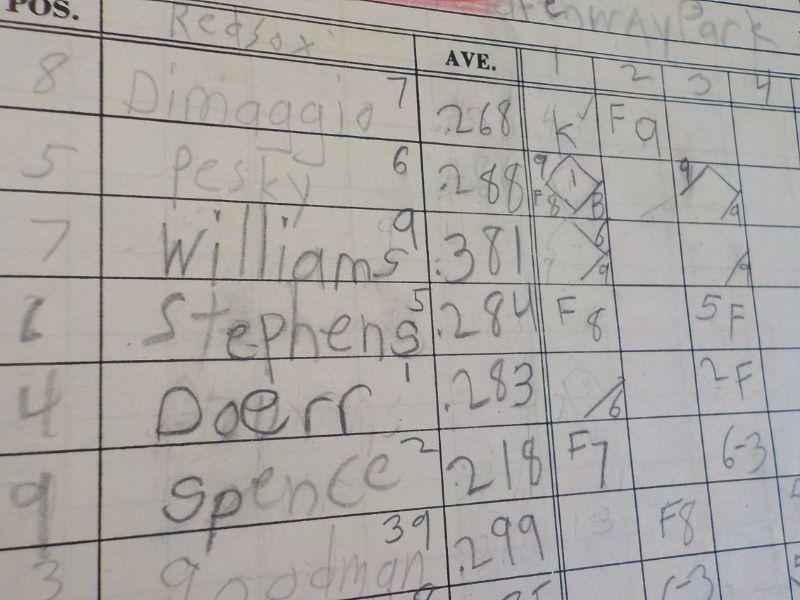 POS. Redsox Fenway Park
AVE. 1 2 3 4
8 Dimaggio 7 .268 K F9
5 Pesky 6 .288 9 1 F8 B 9 9
7 Williams 9 .381 6 9 9
Stephens 5 .284 F8 5F
4 Doerr 1 .283 6 2F
9 Spence 2 .218 F7 6-3
3 Goodman 39 .299 F8
6-3